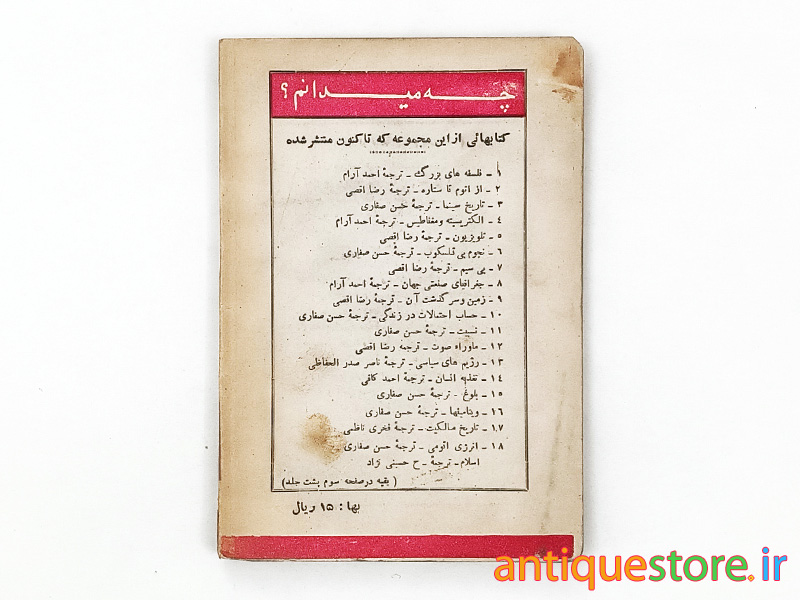 چه میدانم؟
کتابهائی از این مجموعه که تاکنون منتشر شده
۱ - فلسفه های بزرگ - ترجمهٔ احمد آرام
۲ - از اتوم تا ستاره - ترجمهٔ رضا اقصی
۳ - تاریخ سینما - ترجمهٔ حسن صفاری
۴ - الکتریسیته ومغناطیس - ترجمهٔ احمد آرام
۵ - تلویزیون - ترجمهٔ رضا اقصی
۶ - نجوم بی تلسکوب - ترجمهٔ حسن صفاری
۷ - بی سیم - ترجمهٔ رضا اقصی
۸ - جغرافیای صنعتی جهان - ترجمهٔ احمد آرام
۹ - زمین وسرگذشت آن - ترجمهٔ رضا اقصی
۱۰ - حساب احتمالات در زندگی - ترجمهٔ حسن صفاری
۱۱ - نسبیت - ترجمهٔ حسن صفاری
۱۲ - ماوراء صوت - ترجمه رضا اقصی
۱۳ - رژیم های سیاسی - ترجمهٔ ناصر صدر الحفاظی
۱۴ - تغذیه انسان - ترجمهٔ احمد کافی
۱۵ - بلوغ - ترجمهٔ حسن صفاری
۱۶ - ویتامینها - ترجمهٔ حسن صفاری
۱۷ - تاریخ مالکیت - ترجمهٔ فخری ناظمی
۱۸ - انرژی اتومی - ترجمهٔ حسن صفاری
اسلام - ترجمهٔ - ح حسینی نژاد
( بقیه درصفحه سوم پشت جلد)
بها : ۱۵ ریال
antiquestore.ir